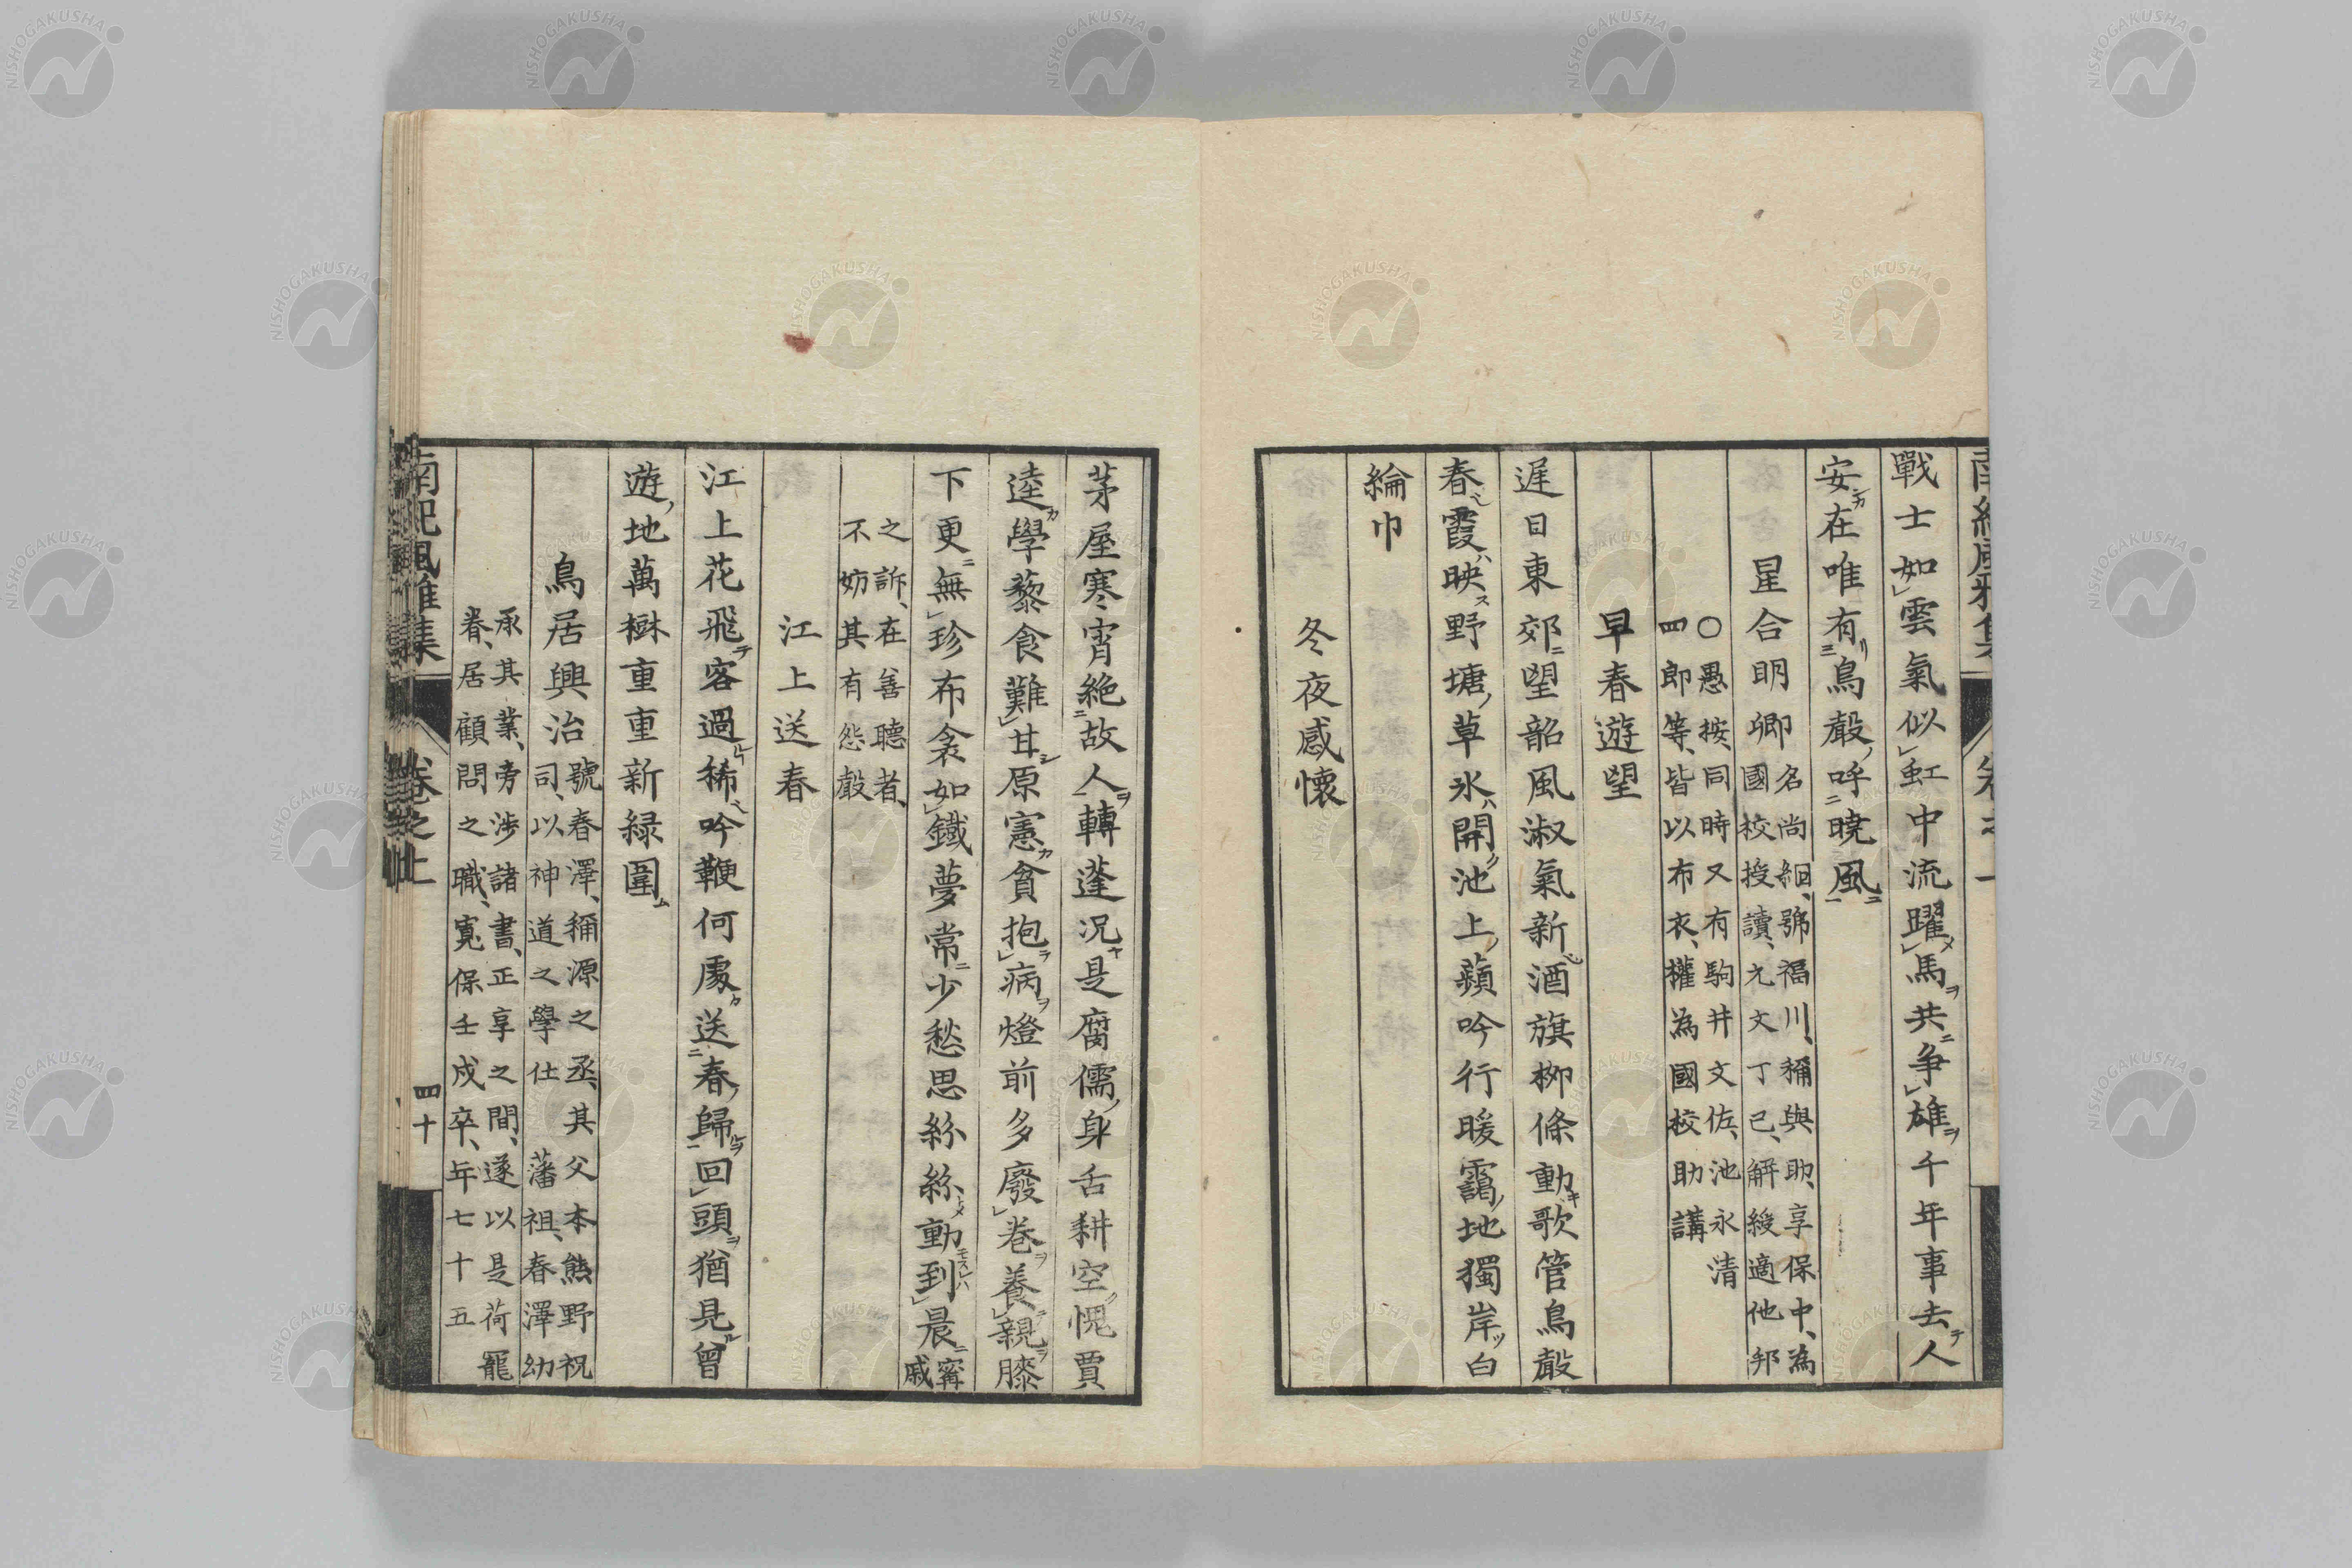 戰士如雲氣似虹中流躍馬共爭雄千年事去人
安在唯有鳥聲呼曉風
星合明卿名尚絅、號福川、稱與助、享保中、為
國校授讀、元文丁已、解綬適他邦
○愚按、同時又有駒井文佐、池永清
四郎等、皆以布衣、權為國校助講
早春遊望
遲日東郊望韶風淑氣新酒旗柳條動歌管鳥聲
春霞映野塘草氷開池上蘋吟行暖靄地獨岸白
綸巾
冬夜感懷
茅屋寒宵絶故人轉蓬況是腐儒身舌耕空愧賈
逵學藜食難甘原憲貧抱病燈前多廢卷養親膝
下更無珍布衾如鐵夢常少愁思絲絲動到晨甯戚
之訴、在善聽者、
不妨其有怨聲
江上送春
江上花飛客過稀吟鞭何處送春歸回頭猶見曾
遊地萬樹重重新緑圍
鳥居興治號春澤、稱源之丞、其父本熊野祝
司、以神道之學仕藩祖、春澤幼
承其業、旁涉諸書、正享之間、遂以是荷寵
眷、居顧問之職、寬保壬戌卒、年七十五
南紀風雅集 卷之上 四十
NISHOGAKUSHA